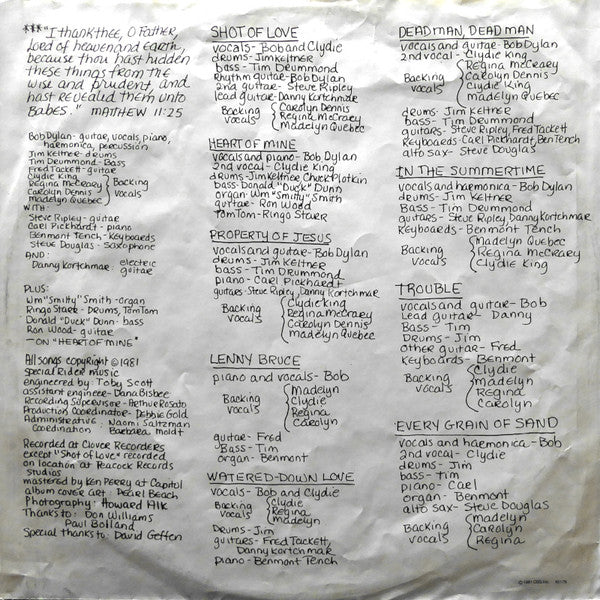 ***"I thank thee, O Father,
Lord of heaven and Earth,
because thou hast hidden
these things from the
wise and prudent, and
hast revealed them unto
Babes." MATTHEW 11:25
Bob Dylan - guitar, vocals, piano,
harmonica, percussion
Jim Keltner - drums
Tim Drummond - Bass
Fred Tackett - guitar
Clydie King
Regina McCrary
Carolyn Dennis
madelyn Quebec
Backing
vocals
WITH
Steve Ripley - guitar
Carl Pickhardt - piano
Benmont Tench - Keyboards
Steve Douglas - saxophone
AND:
Danny Kortchmar - electric
guitar
PLUS:
Wm "Smitty" Smith - organ
Ringo Starr - Drums, Tom Tom
Donald "Duck" Dunn - bass
Ron Wood - guitar
— ON "HEART OF MINE"
All songs copyright © 1981
Special Rider Music
engineered by: Toby Scott
assistant engineer - Dana Bisbee
Recording Supervisor - Arthur Rosato
Production Coordinator - Debbie Gold
Administrative Coordination: Naomi Saltzman
Barbara Moldt
Recorded at Clover Recorders
except "Shot of Love" recorded
on location at Peacock Records
Studios
mastered by Ken Perry at Capitol
album cover art - Pearl Beach
Photography - Howard Alk
Thanks to: Don Williams
Paul Bolland
Special thanks to: David Geffen
SHOT OF LOVE
vocals - Bob and Clydie
drums - Jim Keltner
bass - Tim Drummond
Rhythm guitar - Bob Dylan
2nd guitar - Steve Ripley
lead guitar - Danny Kortchmar
Backing
vocals
Carolyn Dennis
Regina McCrary
madelyn Quebec
HEART OF MINE
vocals and piano - Bob Dylan
2nd vocal - Clydie King
drums - Jim Keltner Chuck Plotkin
bass - Donald "Duck" Dunn
organ - Wm "Smitty" Smith
guitar - Ron Wood
Tom Tom - Ringo Starr
PROPERTY OF JESUS
vocals and guitar - Bob Dylan
drums - Jim Keltner
bass - Tim Drummond
piano - Carl Pickhardt
guitars - Steve Ripley, Danny Kortchmar
Backing
vocals
Clydie King
Regina McCrary
Carolyn Dennis
madelyn Quebec
LENNY BRUCE
piano and vocals - Bob
Backing
vocals
Madelyn
Clydie
Regina
Carolyn
guitar - Fred
Bass - Tim
organ - Benmont
WATERED-DOWN LOVE
vocals - Bob and Clydie
Backing
vocals
Clydie
Regina
madelyn
Drums - Jim
guitars - Fred Tackett,
Danny Kortchmar
piano - Benmont Tench
DEAD MAN, DEAD MAN
vocals and guitar - Bob Dylan
2nd vocal - Clydie King
Backing
vocals
Regina McCrary
Carolyn Dennis
Clydie King
madelyn Quebec
drums - Jim Keltner
bass - Tim Drummond
guitars - Steve Ripley Fred Tackett
Keyboards - Carl Pickhardt, Ben Tench
alto sax - Steve Douglas
IN THE SUMMERTIME
vocals and harmonica - Bob Dylan
drums - Jim Keltner
Bass - Tim Drummond
guitars - Steve Ripley, Danny Kortchmar
Keyboards - Benmont Tench
Backing
vocals
Madelyn Quebec
Regina McCrary
Clydie King
TROUBLE
vocals and guitar - Bob
Lead guitar - Danny
Bass - Tim
Drums - Jim
other guitar - Fred
Keyboards - Benmont
Backing
vocals
Clydie
madelyn
Regina
Carolyn
EVERY GRAIN OF SAND
vocals and harmonica - Bob
2nd vocal - Clydie
drums - Jim
bass - Tim
piano - Carl
organ - Benmont
alto sax - Steve Douglas
Backing
vocals
madelyn
Carolyn
Regina